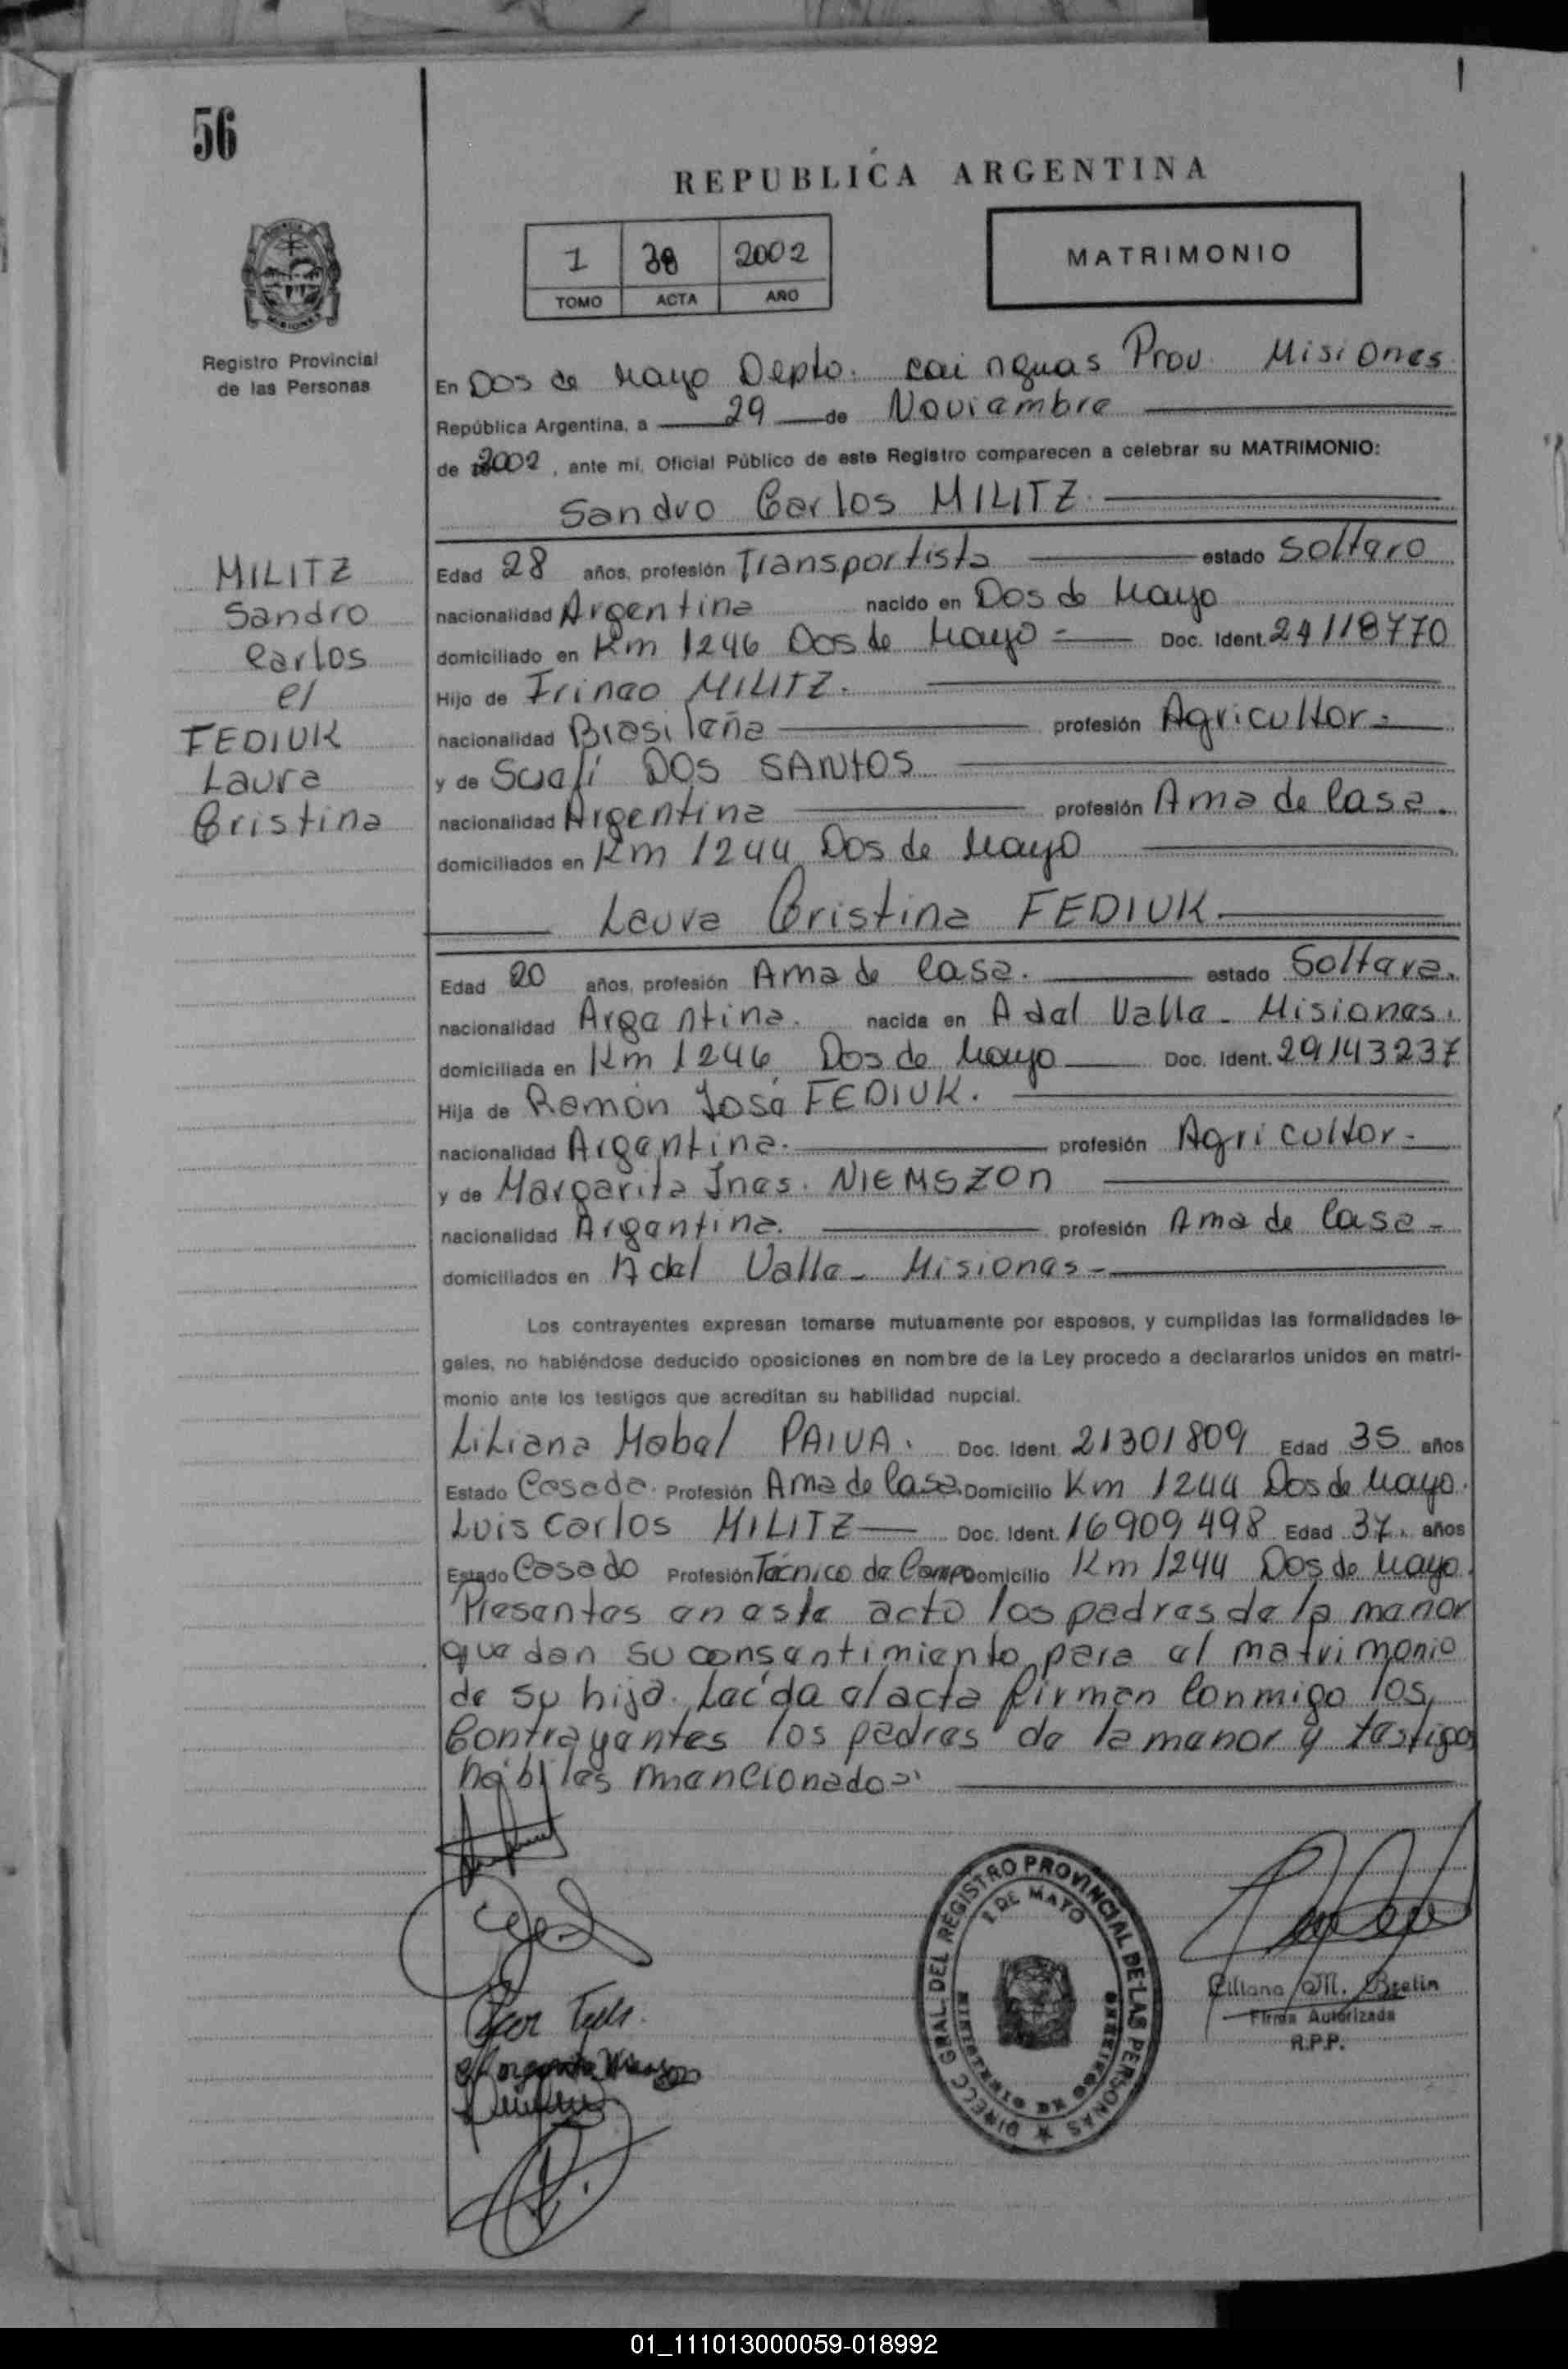 56
REPUBLICA ARGENTINA
1 38 2002
TOMO ACTA AÑO
MATRIMONIO
Registro Provincial
de las Personas
En Dos de Mayo Depto. Cainguas Prov. Misiones
República Argentina, a 29 de Noviembre
de 2002, ante mí, Oficial Público de este Registro comparecen a celebrar su MATRIMONIO:
Sandro Carlos MILITZ
MILITZ
Sandro
Carlos
el
FEDIUK
Laura
Cristina
Edad 28 años, profesión Transportista estado Soltero
nacionalidad Argentina nacido en Dos de Mayo
domiciliado en Km 1246 Dos de Mayo = Doc. Ident. 24118770
Hijo de Irineo MILITZ.
nacionalidad Brasileña profesión Agricultor =
y de DOS SANTOS
nacionalidad Argentina profesión Ama de Casa.
domiciliados en Km 1244 Dos de Mayo
Laura Cristina FEDIUK.
Edad 20 años, profesión Ama de Casa. estado Soltera.
nacionalidad Argentina. nacida en A del Valle - Misiones.
domiciliada en Km 1246 Dos de Mayo Doc. Ident. 29143237
Hija de Ramón José FEDIUK.
nacionalidad Argentina. profesión Agricultor =
y de Margarita Ines. NIEMSZON
nacionalidad Argentina. profesión Ama de Casa -
domiciliados en A del Valle - Misiones -
Los contrayentes expresan tomarse mutuamente por esposos, y cumplidas las formalidades le-
gales, no habiéndose deducido oposiciones en nombre de la Ley procedo a declararlos unidos en matri-
monio ante los testigos que acreditan su habilidad nupcial.
Liliana Mabel PAIVA. Doc. Ident. 21301809 Edad 35 años
Estado Casada. Profesión Ama de Casa. Domicilio Km 1244 Dos de Mayo.
Luis Carlos MILITZ Doc. Ident. 16909498 Edad 37. años
Estado Casado Profesión Técnico de Campo Domicilio Km 1244 Dos de Mayo.
Presentes en este acto los padres de la menor
que dan su consentimiento para el matrimonio
de su hija. Leída el acta firman Conmigo los
Contrayentes los padres de la menor y testigos
hábiles mencionados
DIRECC GRAL. DEL REGISTRO PROVINCIAL DE LAS PERSONAS
2 DE MAYO
MINISTERIO DE GOBIERNO
Liliana M. Brelin
Firma Autorizada
R.P.P.
01_111013000059-018992